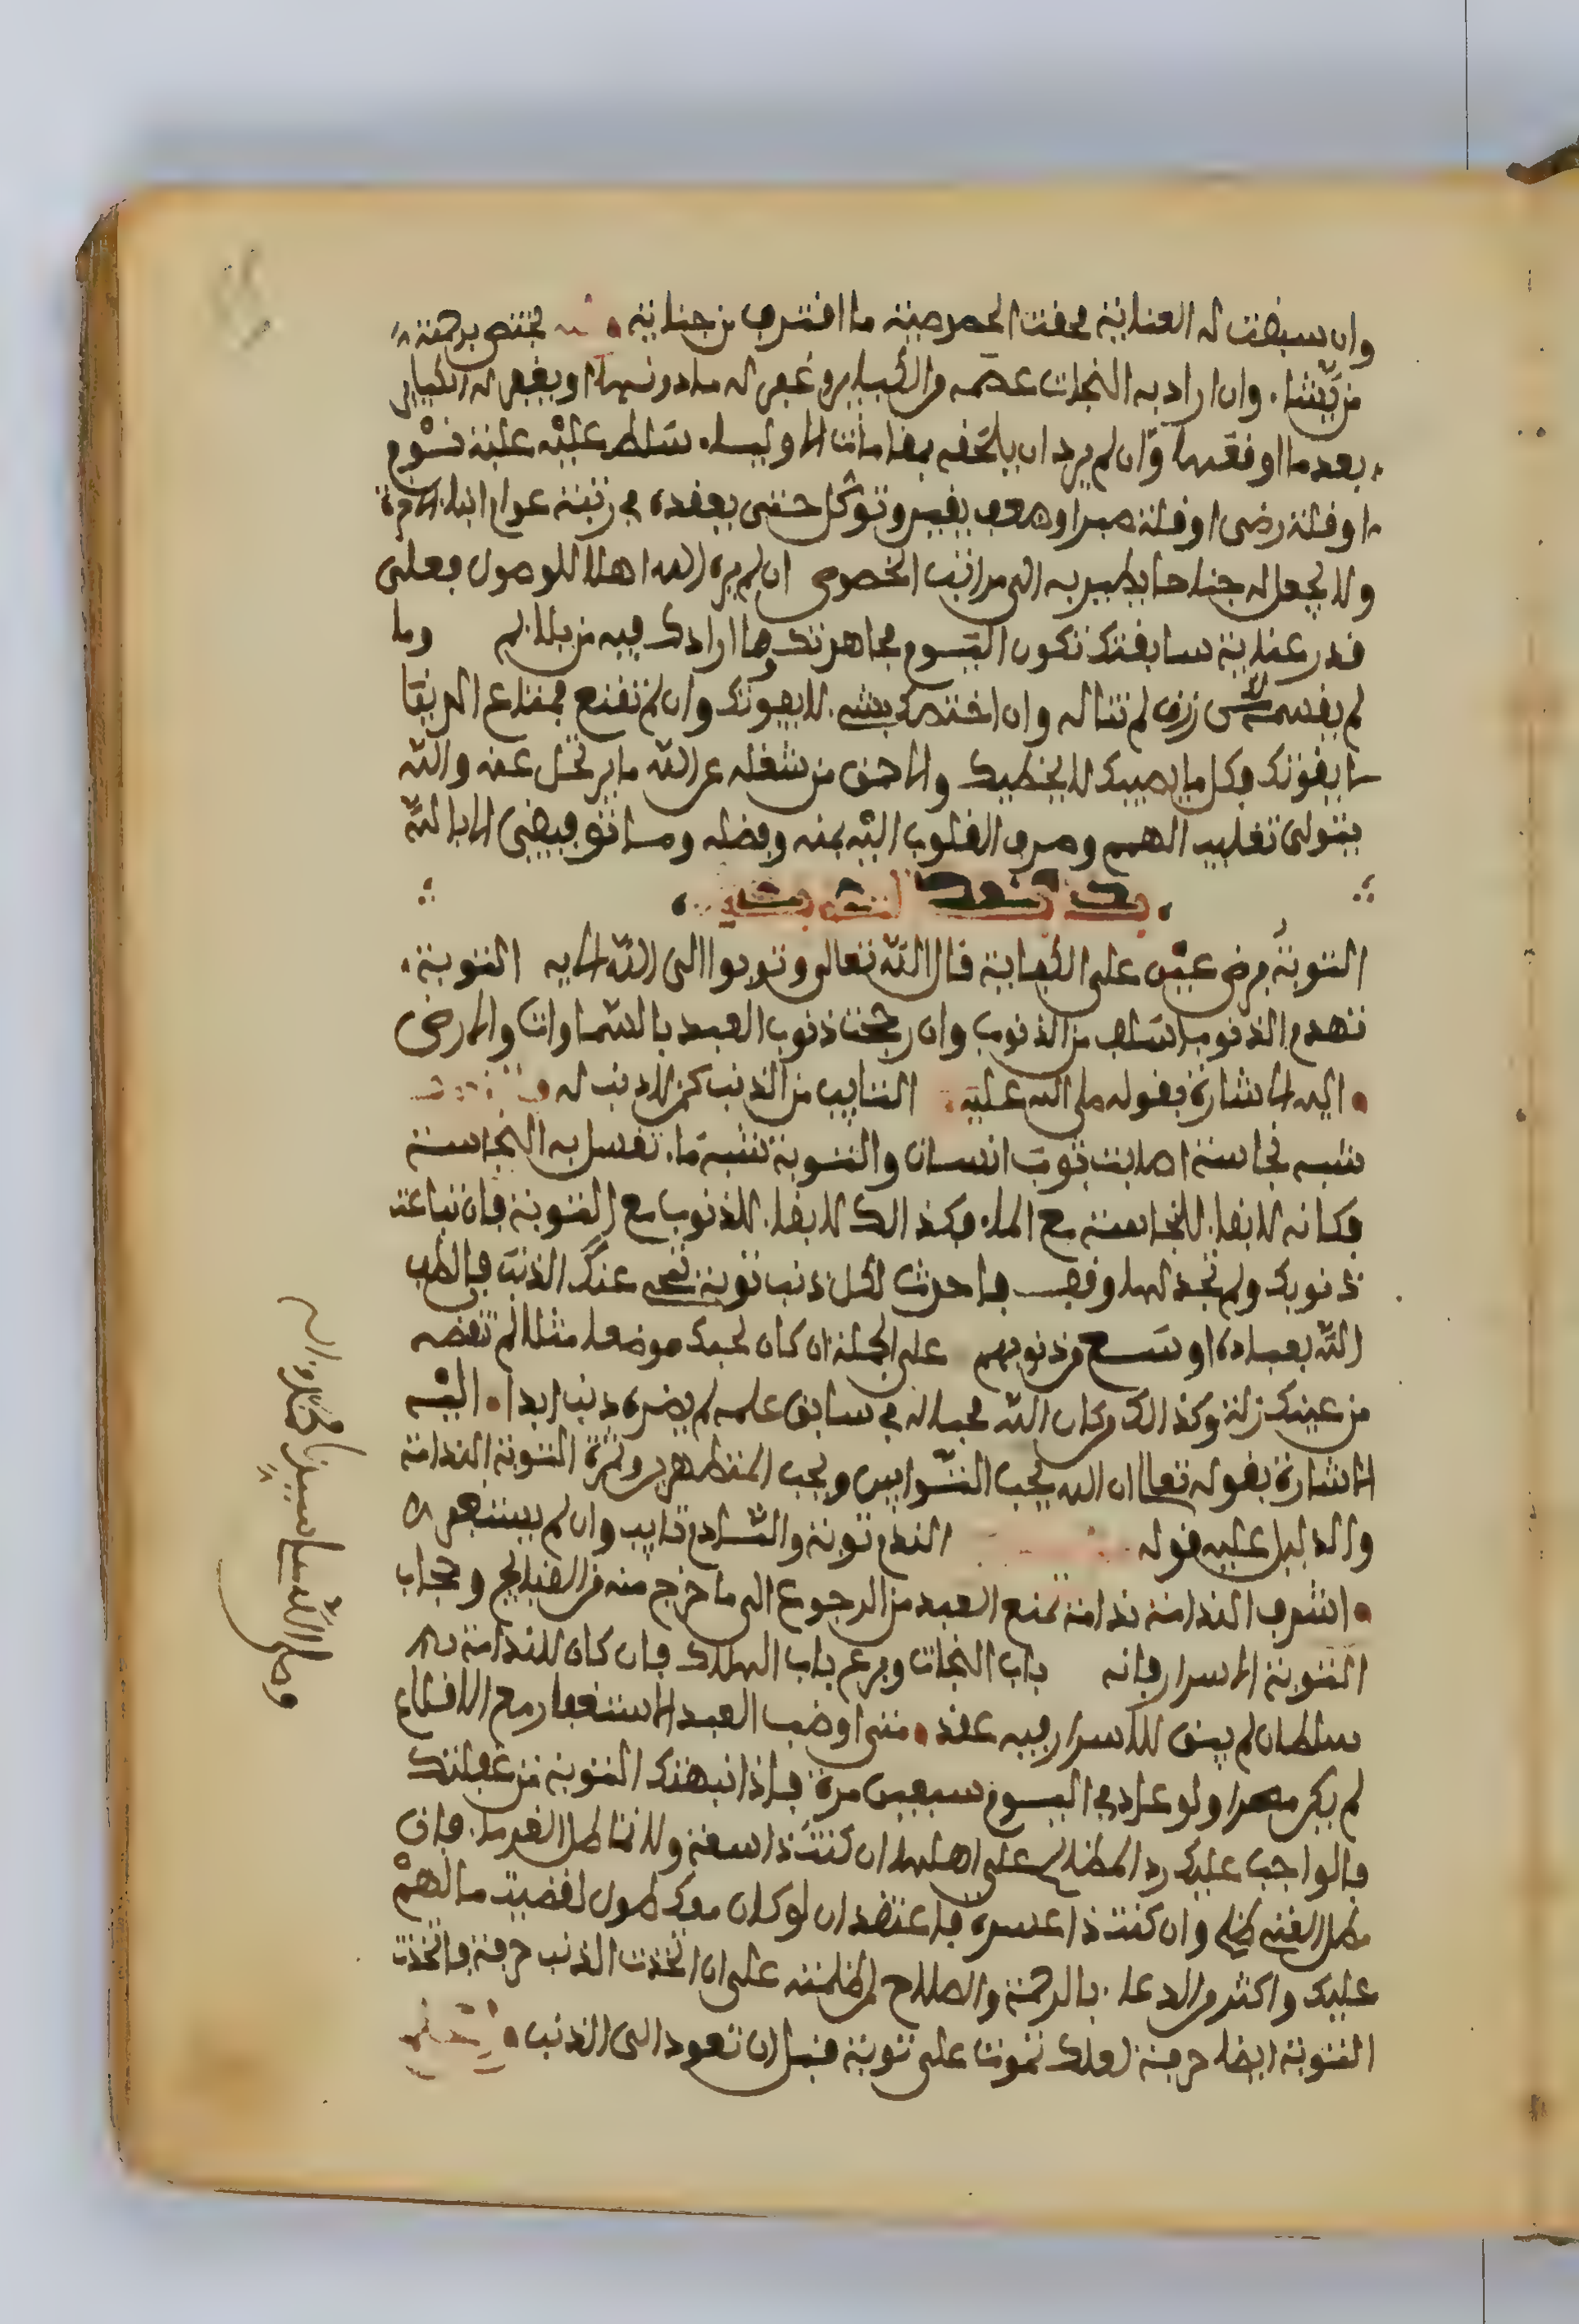 وان سبقت له العناية محقت الخصوصية ما اقترف من جناية يختص برحمته
من يشا. وان اراد به النجات عصمه من الكباير وغفر له ما دونها او يغفر له الكباير
بعد ما اوقعها وان لم يرد ان يلحقه بمقامات الاوليا. سلط عليه غلبة نوم
او قلة رضى او قلة صبر او ضعف يقين وتوكل حتى يقعده في رتبة عوام
ولا يجعل له جناحا يطير به الى مراتب الخصوص ان لم يره الله اهلا للوصول فعلى
قدر عناية سابقتك تكون اليوم مجاهدتك وما ارادك فيه من بلا لم وما
لم يقسمه لك من رزق لم تناله وان اختصك بشي. لا يفوتك وان لم تقنع
يفوتك وكل ما يصيبك لا يخطيك والاحمق من شغله عن الله ما يرتحل عنه والله
يتولى تغليب الهمم وصرف القلوب اليه بمنه وفضله وما توفيقي الا بالله
التوبة فرض عين على الكفاية قال الله تعالى وتوبوا الى الله الايه التوبة
تهدم الذنوب ما سلف من الذنوب وان رجحت ذنوب العبد بالسماوات والارض
اليه الاشارة بقوله صلى الله عليه التايب من الذنب كمن لا ذنب له
شبه نجاسة اصابت ثوب انسان والتوبة شبه ما. تغسل به النجاسة
فكما انه لا بقا. للنجاسة مع الما. فكذالك لا بقا. للذنوب مع التوبة فان تباعد
ذنوبك ولم تجد لها وقف فاحدث لكل ذنب توبة تمحه عنك الذنب فالطف
الله بعباده اوسع من ذنوبهم على الجملة ان كان لحبك موضعا مثلا لم تنقصه
من عينك زلة وكذالك من كان الله محبا له في سابق علمه لم يضره ذنب ابدا. اليه
الاشارة بقوله تعالى ان الله يحب التوابين ويحب المتطهرين وثمرة التوبة الندامة
والدليل عليه قوله الندم توبة والنادم تايب وان لم يستغفر
اشرف الندامة ندامة تمنع العبد من الرجوع الى ما خرج منه من القبايح وحجاب
التوبة الاسرار فانه باب النجات ويرغم باب الهلاك فان كان للندامة
سلطان لم يبق للاسرار فيه عقد. متى اوضب العبد الاستغفار مع الاقلاع
لم يكن مصرا ولو عاد في اليوم سبعين مرة فاذا نبهتك التوبة من غفلتك
فالواجب عليك رد المظالم على اهلها ان كنت ذا سعة ولا تماطل الغرما. فان
مطل الغني ظلم وان كنت ذا عسرة فاعتقد ان لو كان معك طول لقضيت ما لهم
عليك واكثر من الدعا. بالرحمة والصلاح لمن ظلمته على ان اتخذت الذنب حرفة فاتخذ
التوبة ايضا حرفة لعلك تموت على توبة قبل ان تعود الى الذنب
وصلى الله على سيدنا محمد واله